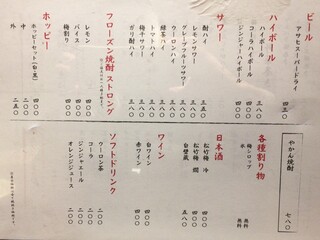 ビール
アサヒスーパードライ 四三〇
ハイボール
ハイボール 三八〇
コーラハイボール 四〇〇
ジンジャーハイボール 四〇〇
サワー
酎ハイ 三五〇
レモンサワー 三八〇
グレープフルーツサワー 三八〇
ウーロンハイ 三八〇
緑茶ハイ 三八〇
トマトハイ 三八〇
梅干サワー 三八〇
ガリ酎ハイ 三八〇
フローズン焼酎 ストロング
レモン 四〇〇
パイス 四〇〇
梅割り 四〇〇
ホッピー
ホッピーセット(白・黒) 四〇〇
中 二〇〇
外 二五〇
やかん焼酎 七八〇
各種割り物
梅シロップ 無料
氷 無料
日本酒
松竹梅 冷 四〇〇
松竹梅 燗 四〇〇
白壁蔵 五八〇
ワイン
白ワイン 四〇〇
赤ワイン 四〇〇
ソフトドリンク
ウーロン茶 二〇〇
コーラ 二〇〇
ジンジャエール 二〇〇
オレンジジュース 二〇〇